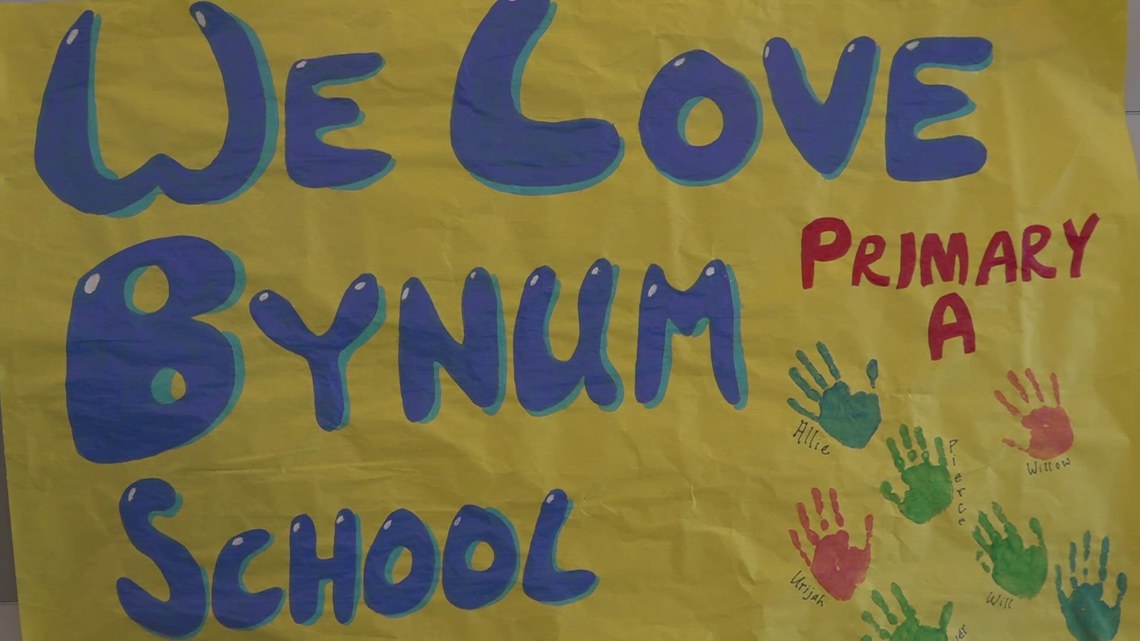 We Love
Bynum
School
Primary
A
Allie
Pierce
Willow
Urijah
Will